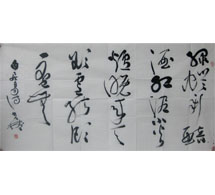 绿蚁新醅
酒红泥小
火炉晚来天
欲雪能饮
一杯无
白居易诗